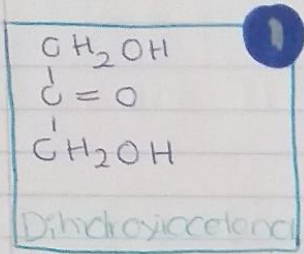 1
CH2OH
C = O
CH2OH
Dihidroxiacetona